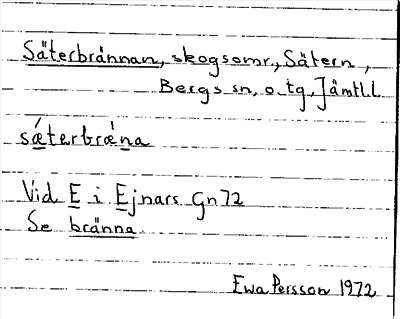 Säterbrännan, skogsomr., Sätern,
Bergs sn, o. tg, Jämtl. l
sǽterbrǽna
Vid E i Ejnars Gn 72
Se bränna
Ewa Persson 1972